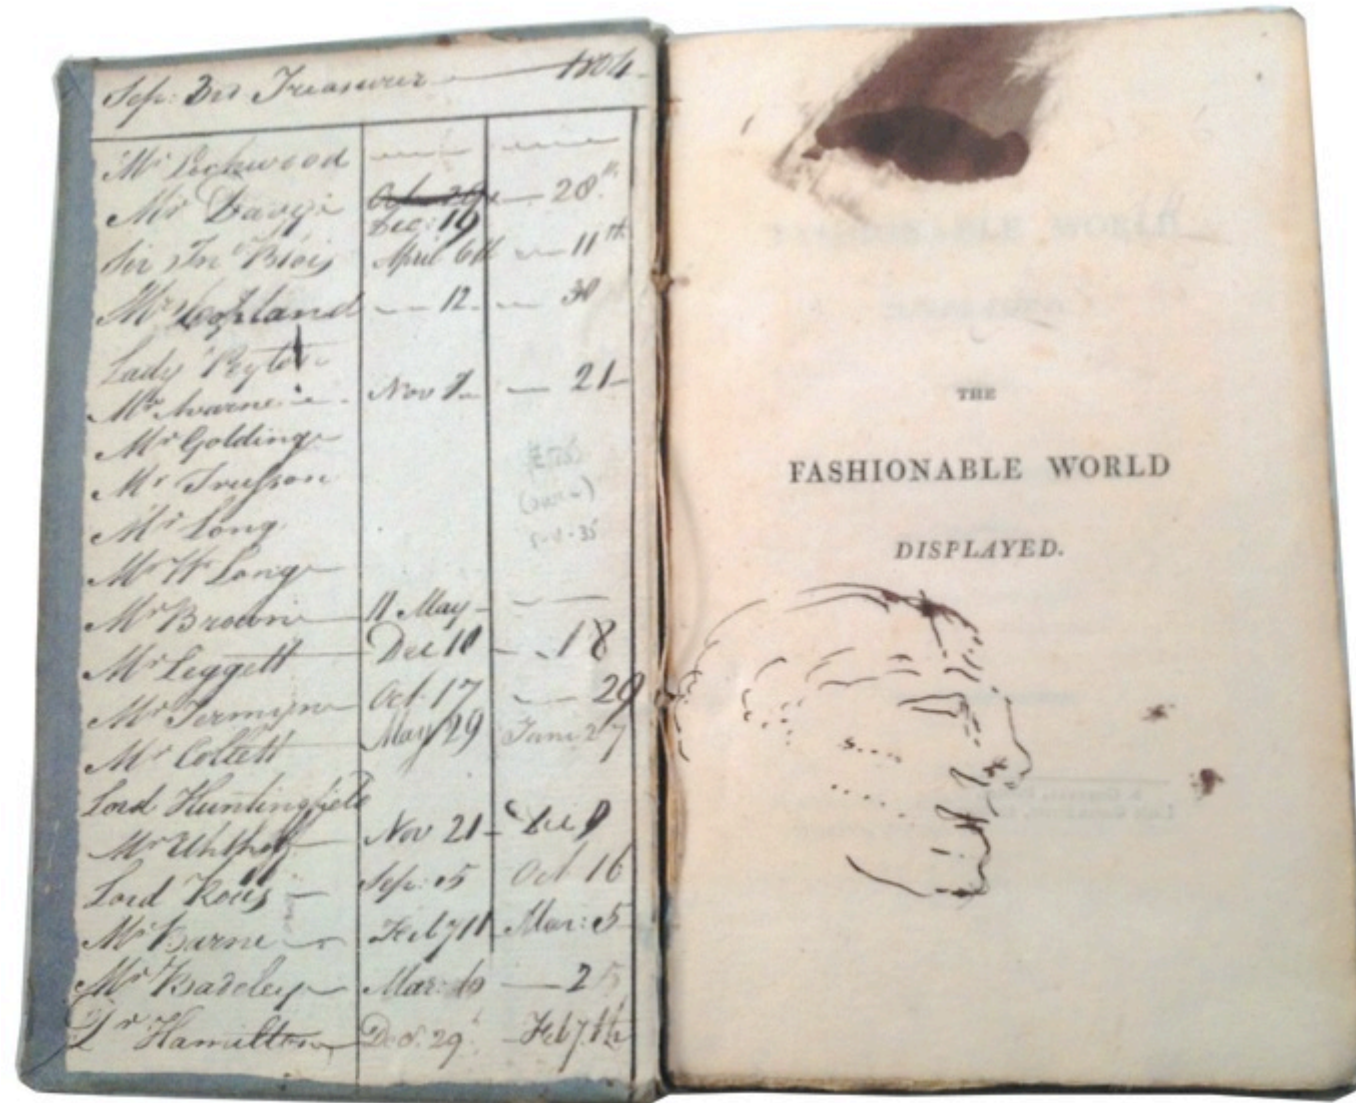 Sep: 3rd Treasurer 1804
Mr Lockwood
Mr Davy 28th
Dec: 19
Sir Jn Blois April 6th 11th
Mr Copland 12 30
Lady Peyton
Mr Avarne Nov 7 21
Mr Golding
Mr Trusson
Mr Long
Mr W Long
Mr Brown 11 May
Mr Leggett Dec 10 18
Mr Jermyn Oct 17 29
Mr Collett May 29 27
Lord Huntingfield
Mr Uhthoff Nov 21 Dec 9
Lord Rous Sep: 5 Oct 16
Mr Barne Feb 7th Mar: 5
Mr Badeley Mar: 25
Dr Hamilton Dec. 29 Feb 7th
THE
FASHIONABLE WORLD
DISPLAYED.